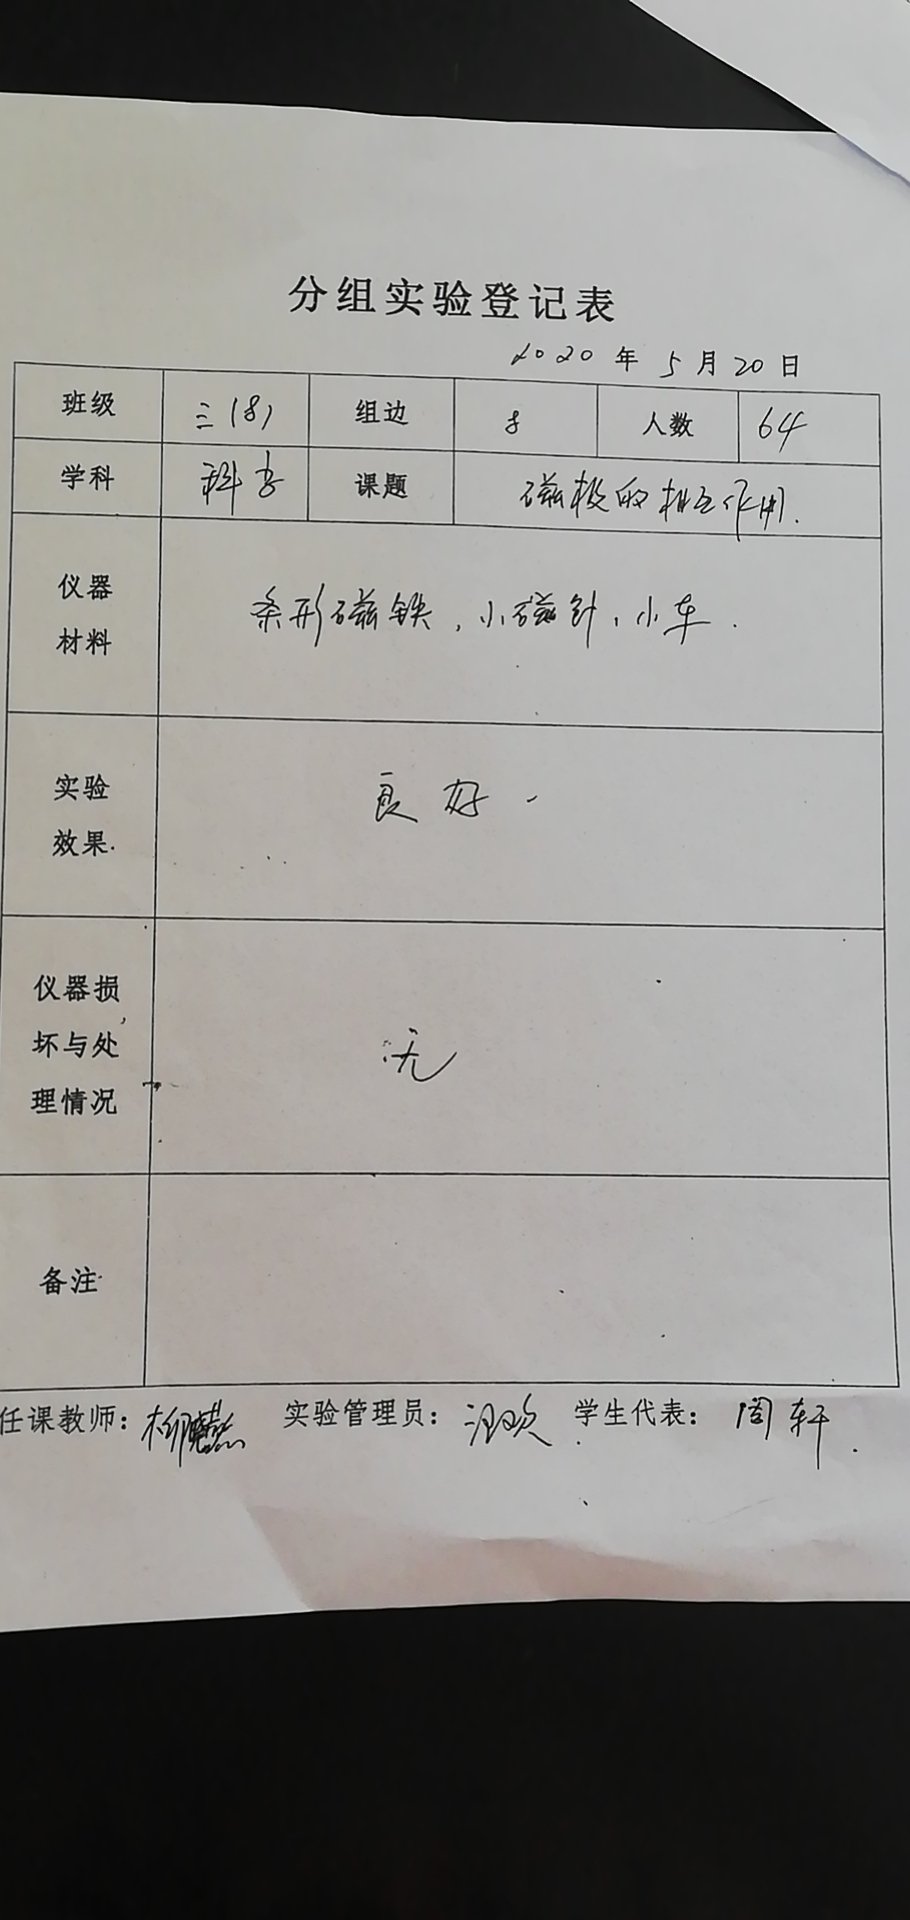 分组实验登记表
2020年5月20日
班级 三(8) 组边 8 人数 64
学科 科学 课题 磁极的相互作用.
仪器 条形磁铁,小磁针,小车.
材料
实验 良好.
效果.
仪器损
坏与处 无
理情况
备注
任课教师: 实验管理员: 学生代表: 周轩.